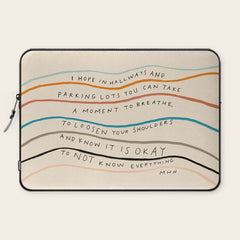 I HOPE IN HALLWAYS AND
PARKING LOTS YOU CAN TAKE
A MOMENT TO BREATHE,
TO LOOSEN YOUR SHOULDERS
AND KNOW IT IS OKAY
TO NOT KNOW EVERYTHING
MHN